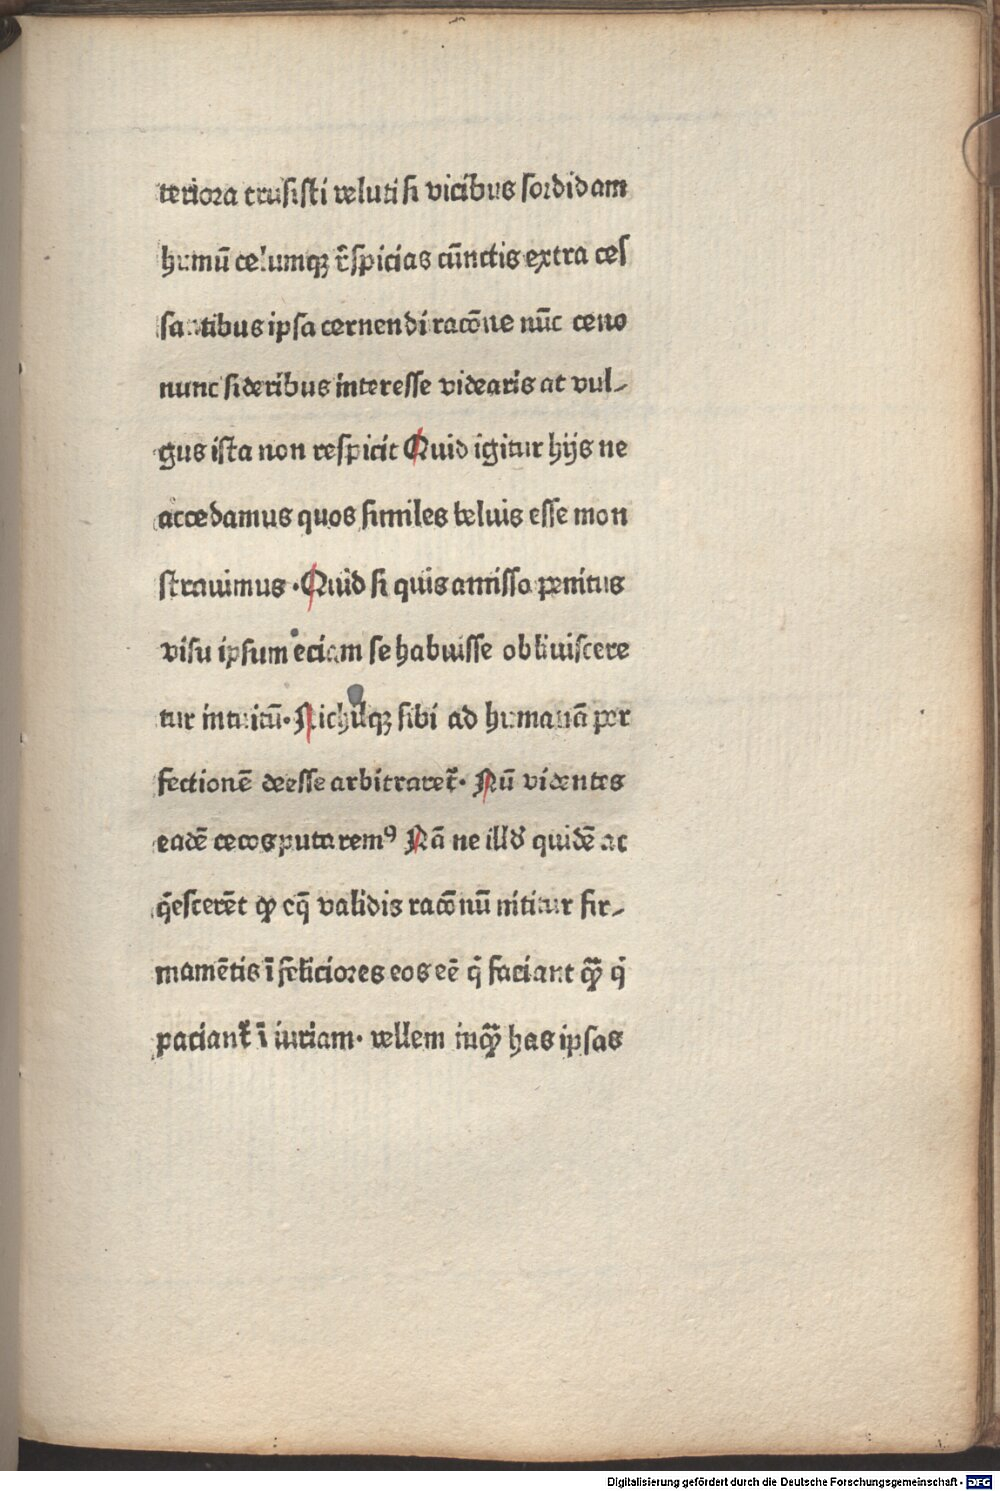 teriora trusisti veluti si vicibus sordidam
humū celumqꝫ r̄spicias cūnctis extra ces
santibus ipsa cernendi racōne nūc ceno
nunc sideribus interesse videaris at vul-
gus ista non respicit Quid igitur hijs ne
accedamus quos similes beluis esse mon
strauimus · Quid si quis amisso penitus
visu ipsum eciam se habuisse obliuiscere
tur intuitū· Nichilqꝫ sibi ad humanā per
fectionē deesse arbitraret᷑· Nū videntes
eadē cecos putaremꝰ Nā ne illd̓ quidē ac
q̄escerēt qꝫ eq̄ validis racōnū nititur fir-
mamētis ī feliciores eos eē q̄ faciant q̄ꝫ q̄
paciant᷑ ī iuriam· vellem inq̄ꝫ has ipsas
Digitalisierung gefördert durch die Deutsche Forschungsgemeinschaft - DFG